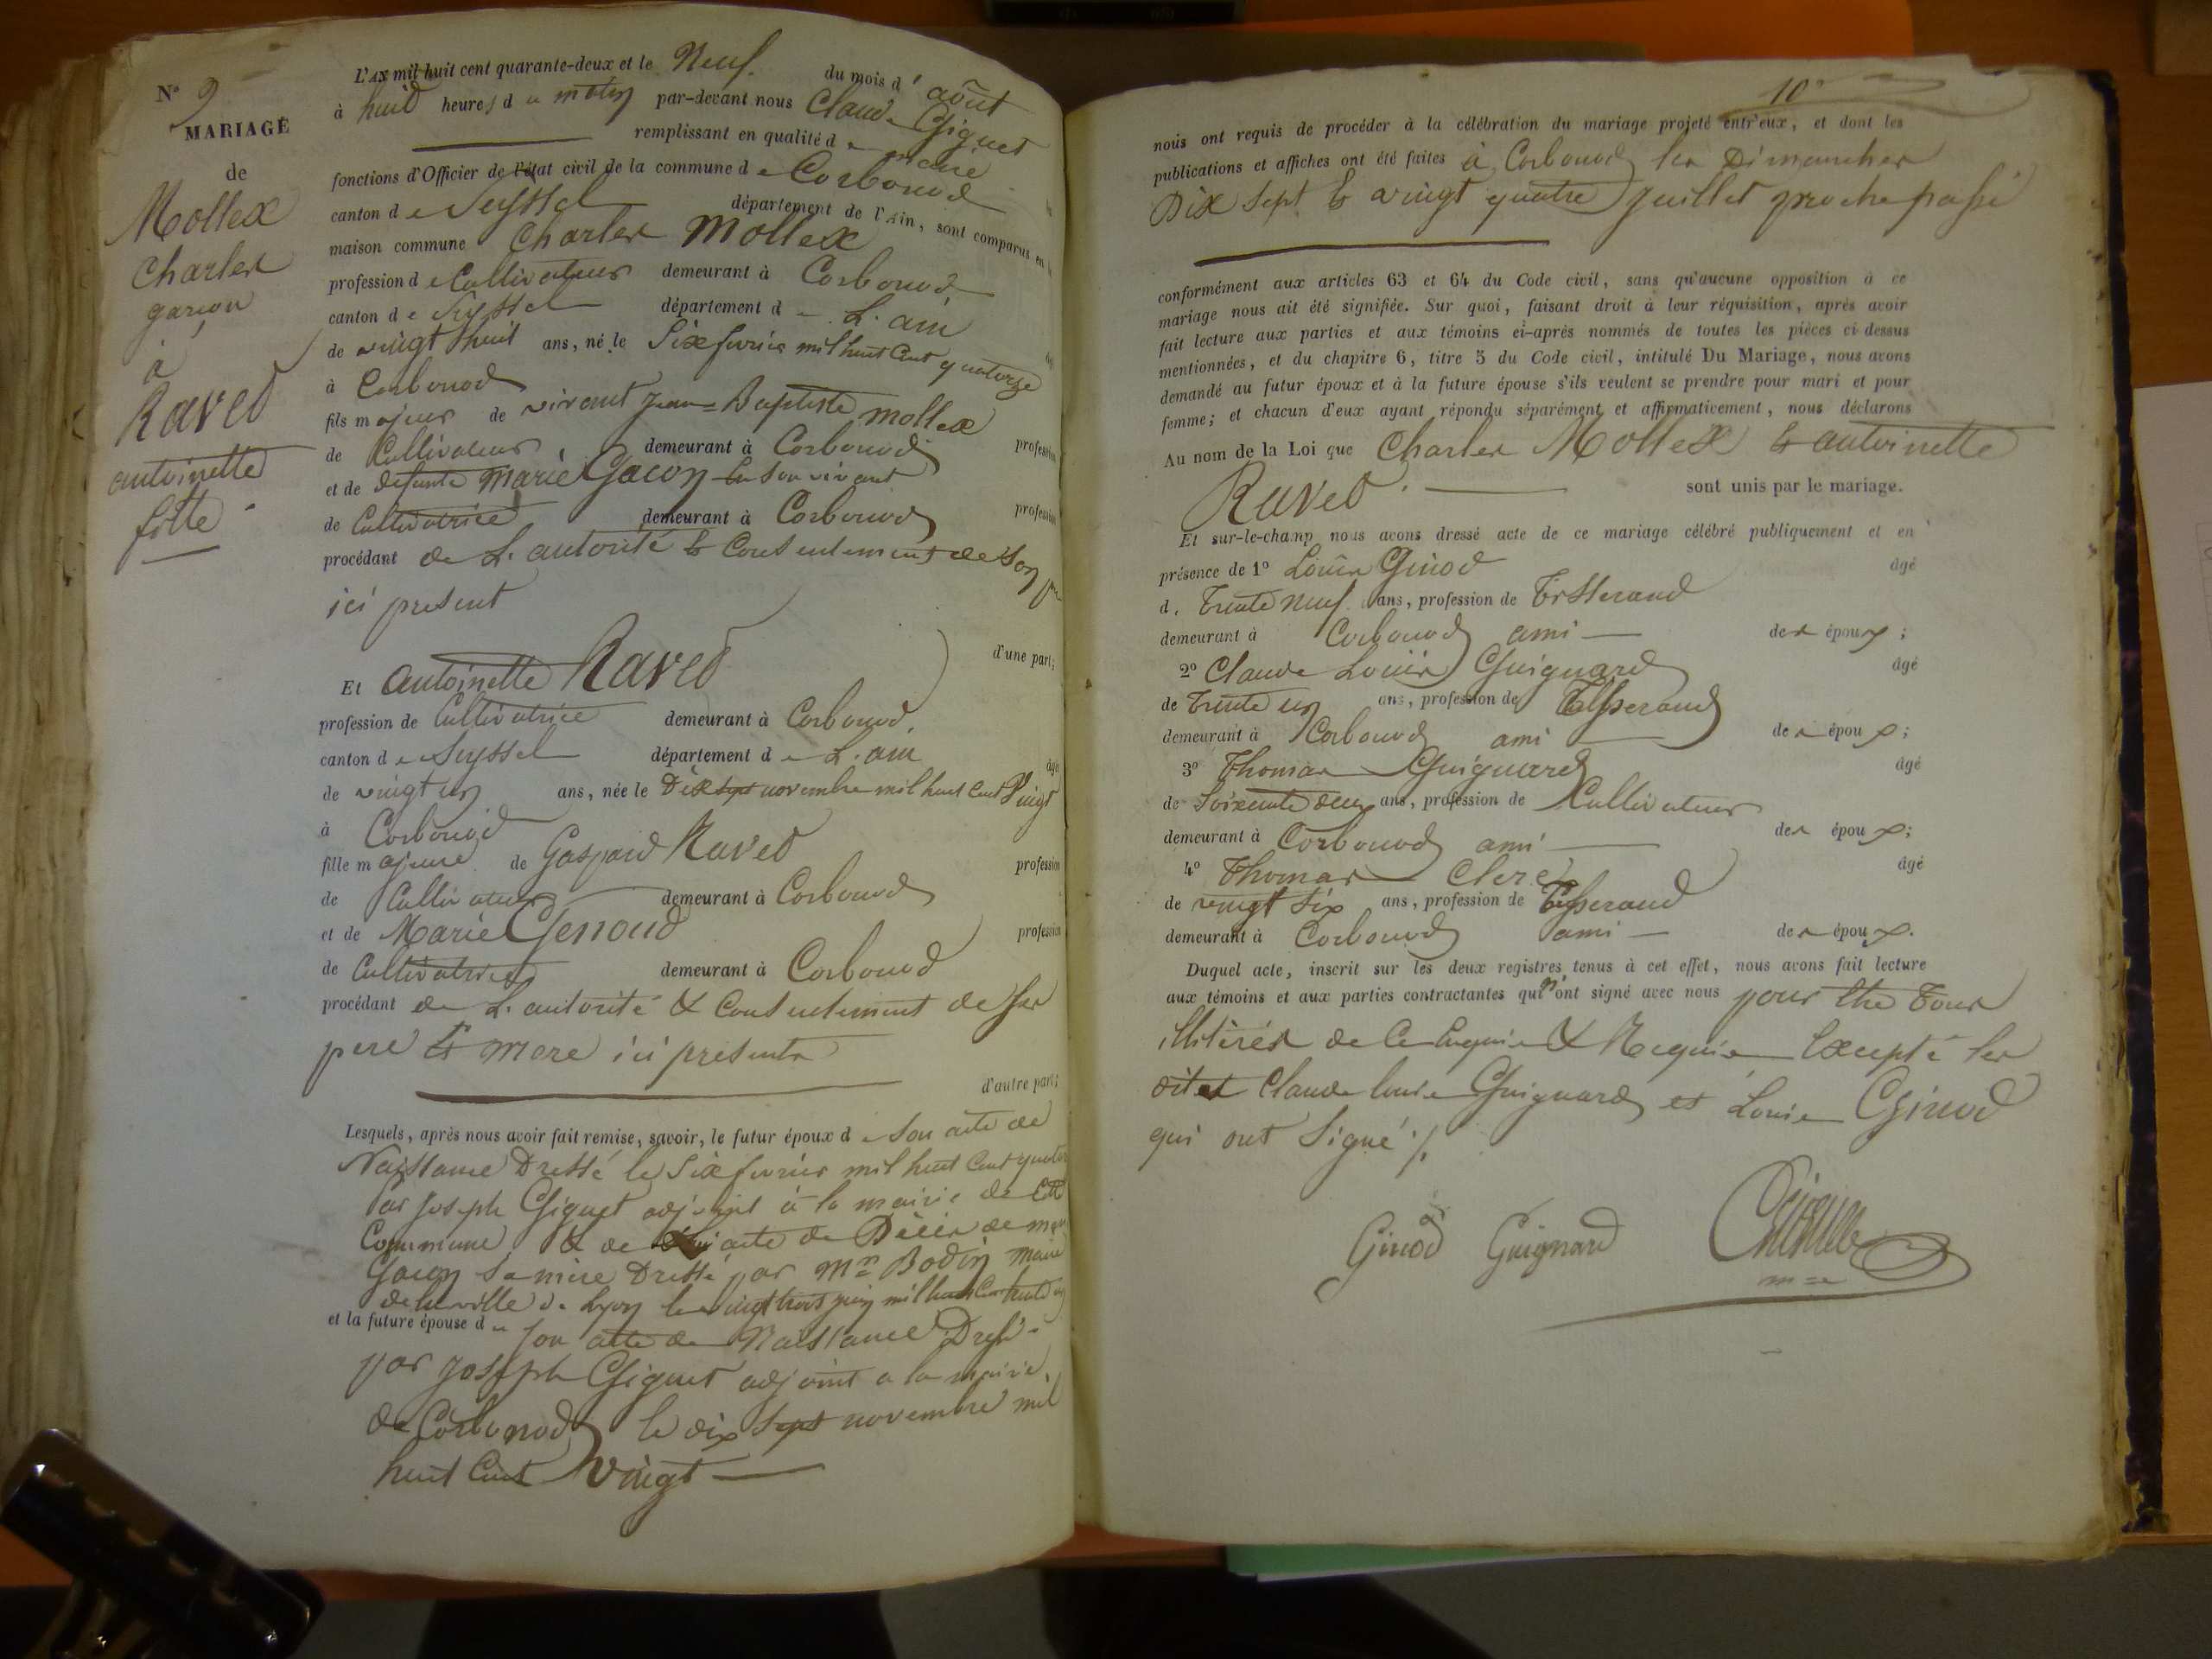 N° 9
MARIAGE
de
Mollex
Charles
garçon
à
Ravet
antoinette
fille
L'AN mil huit cent quarante-deux et le Neuf du mois d'août
à huit heures du matin par-devant nous Claude Giguet
remplissant en qualité de maire
fonctions d'Officier de l'état civil de la commune de Corbonod
canton de Seyssel département de l'Ain, sont comparus en la
maison commune Charles Mollex
profession de Cultivateur demeurant à Corbonod
canton de Seyssel département de L'ain
de vingt huit ans, né le Six fevrier mil huit Cent quatorze
à Corbonod
fils majeur de vivant Jean-Baptiste Mollex profession
de Cultivateur demeurant à Corbonod
et de defunte Marie Gacon en Son vivant profession
de Cultivatrice demeurant à Corbonod
procédant de L'autorité & Consentement de Son
ici present
d'une part;
Et antoinette Ravet
profession de Cultivatrice demeurant à Corbonod
canton de Seyssel département de L'ain
de vingt un ans, née le Dix sept novembre mil huit Cent Vingt
à Corbonod
fille majeure de Gaspard Ravet profession
de Cultivateur demeurant à Corbonod
et de Marie Genoud profession
de Cultivatrice demeurant à Corbonod
procédant de L'autorité & Consentement de Ses
pere & mere ici presents
d'autre part;
Lesquels, après nous avoir fait remise, savoir, le futur époux de Son acte de
Naissance Dressé le Six fevrier mil huit Cent
par Joseph Giguet adjoint à la mairie de
Commune & de acte de Décès de
Gacon Sa mère Dressé par Mr Bodin maire
de la ville de Lyon le vingt trois juin mil huit Cent
et la future épouse de Son acte de Naissance Dressé
par Joseph Giguet adjoint a la mairie
de Corbonod le dix sept novembre mil
huit Cent Vingt
10
nous ont requis de procéder à la célébration du mariage projeté entr'eux, et dont les
publications et affiches ont été faites à Corbonod les Dimanches
Dix Sept & vingt quatre juillet proche passé
conformément aux articles 63 et 64 du Code civil, sans qu'aucune opposition à ce
mariage nous ait été signifiée. Sur quoi, faisant droit à leur réquisition, après avoir
fait lecture aux parties et aux témoins ci-après nommés de toutes les pièces ci dessus
mentionnées, et du chapitre 6, titre 5 du Code civil, intitulé Du Mariage, nous avons
demandé au futur époux et à la future épouse s'ils veulent se prendre pour mari et pour
femme; et chacun d'eux ayant répondu séparément et affirmativement, nous déclarons
Au nom de la Loi que Charles Mollex & antoinette
Ravet sont unis par le mariage.
Et sur-le-champ nous avons dressé acte de ce mariage célébré publiquement et en
présence de 1° Louis Ginod âgé
de Trente neuf ans, profession de Tisserand
demeurant à Corbonod ami des époux;
2° Claude Louis Guignard âgé
de Trente un ans, profession de Tisserand
demeurant à Corbonod ami des époux;
3° Thomas Guignard âgé
de Soixante deux ans, profession de Cultivateur
demeurant à Corbonod ami des époux;
4° Thomas Clerc âgé
de vingt Six ans, profession de Tisserand
demeurant à Corbonod ami des époux.
Duquel acte, inscrit sur les deux registres tenus à cet effet, nous avons fait lecture
aux témoins et aux parties contractantes qui n'ont signé avec nous pour Etre Tous
illitérés de Ce Enquis & Requis Excepté les
dites Claude Louis Guignard et Louis Ginod
qui ont Signé ./.
Ginod Guignard